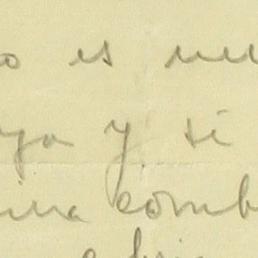 o es nu
ya y si
ina comb